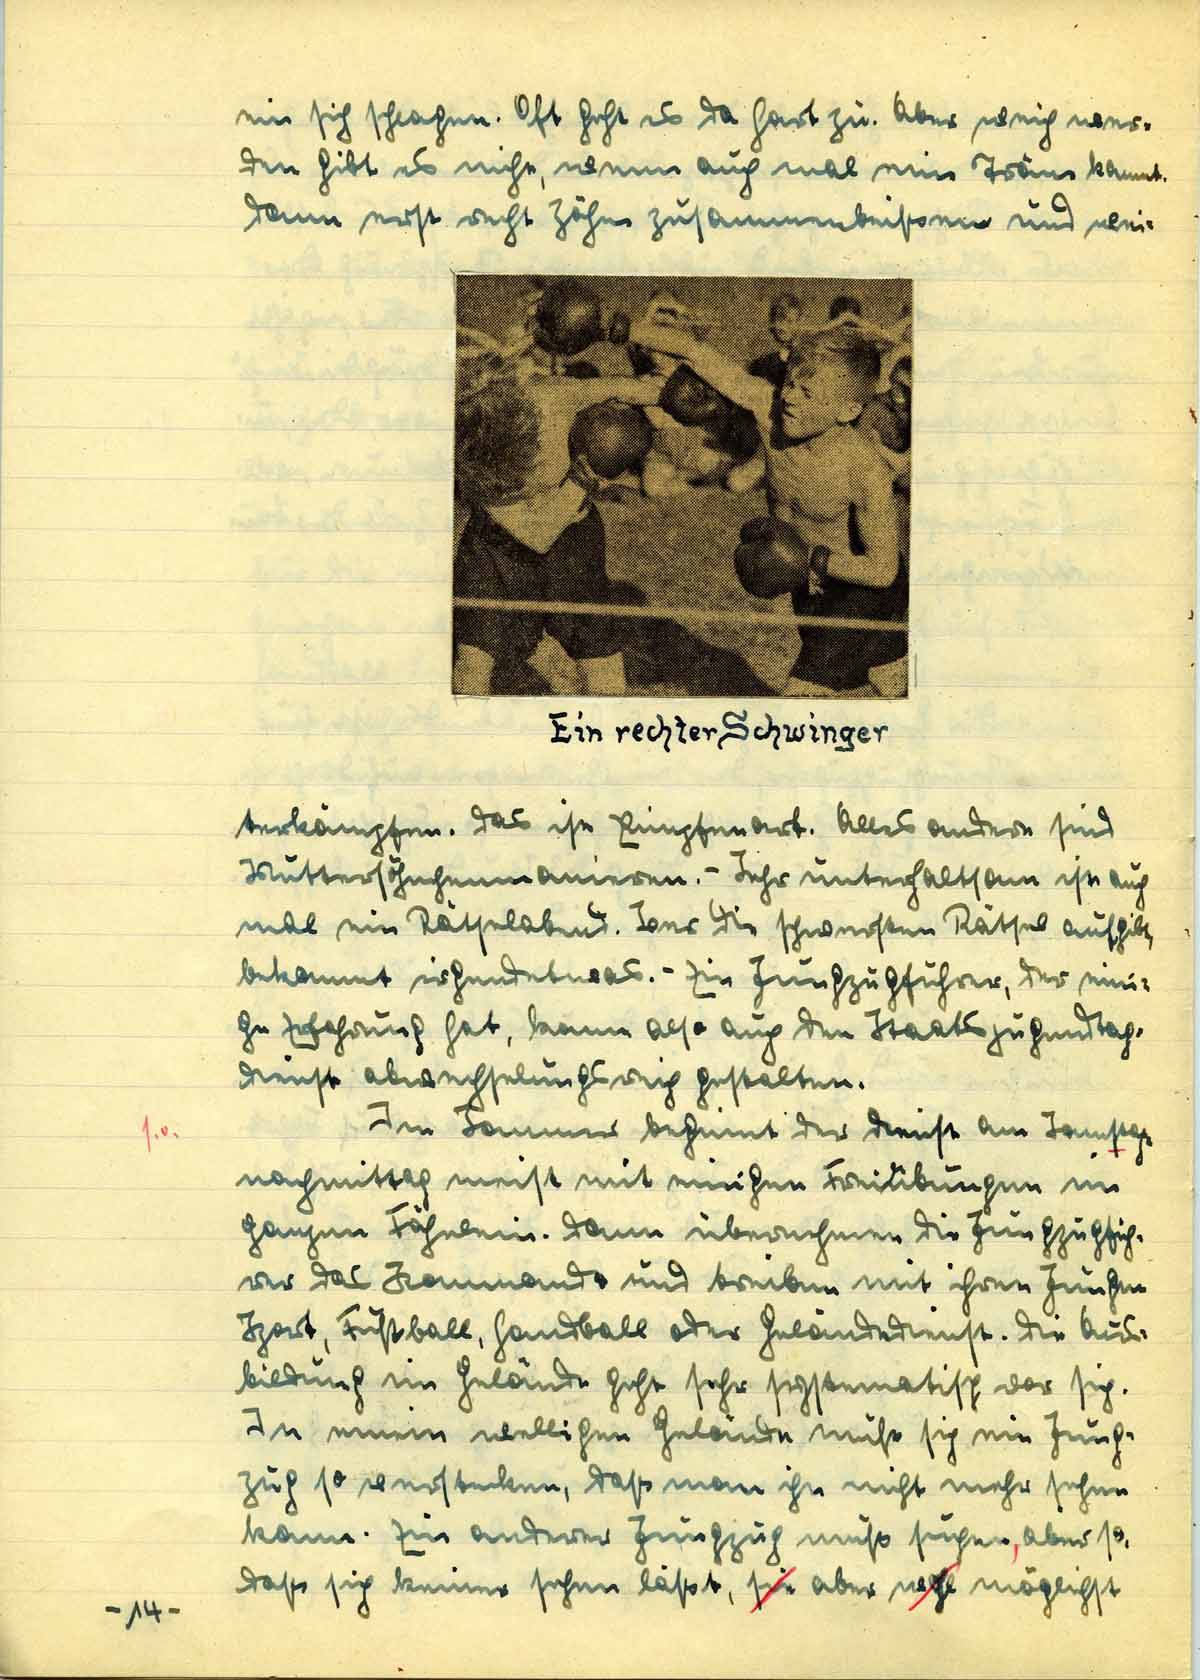 ein sich schlagen. Oft geht es da hart zu. Aber weich wer-
den gibt es nicht, wenn auch mal ein Träne kommt.
Dann erst recht Zähne zusammenbeissen und wei-
Ein rechter Schwinger
terkämpfen. Das ist Pimpfenart. Alles andere sind
Muttersöhnchenmanieren. - Sehr unterhaltsam ist auch
mal ein Rätselabend. Wer die schwersten Rätsel aufgibt,
bekommt irgendetwas. - Ein Jungzugführer, der eini-
ge Erfahrung hat, kann also auch den Staatsjugendtag-
dienst abwechselungsreich gestalten.
s.o.
Im Sommer beginnt der Dienst am Samstag
nachmittag meist mit einigen Freiübungen im
ganzen Fähnlein. Dann übernehmen die Jungzugfüh-
rer das Kommando und treiben mit ihren Jungen
Sport, Fußball, Handball oder Geländedienst. Die Aus-
bildung im Gelände geht sehr systematisch vor sich.
In einem welligen Gelände muß sich ein Jung-
zug so verstecken, daß man ihn nicht mehr sehen
kann. Ein anderer Jungzug muß suchen, aber so,
daß sich keiner sehen läßt, sie aber wohl möglichst
-14-